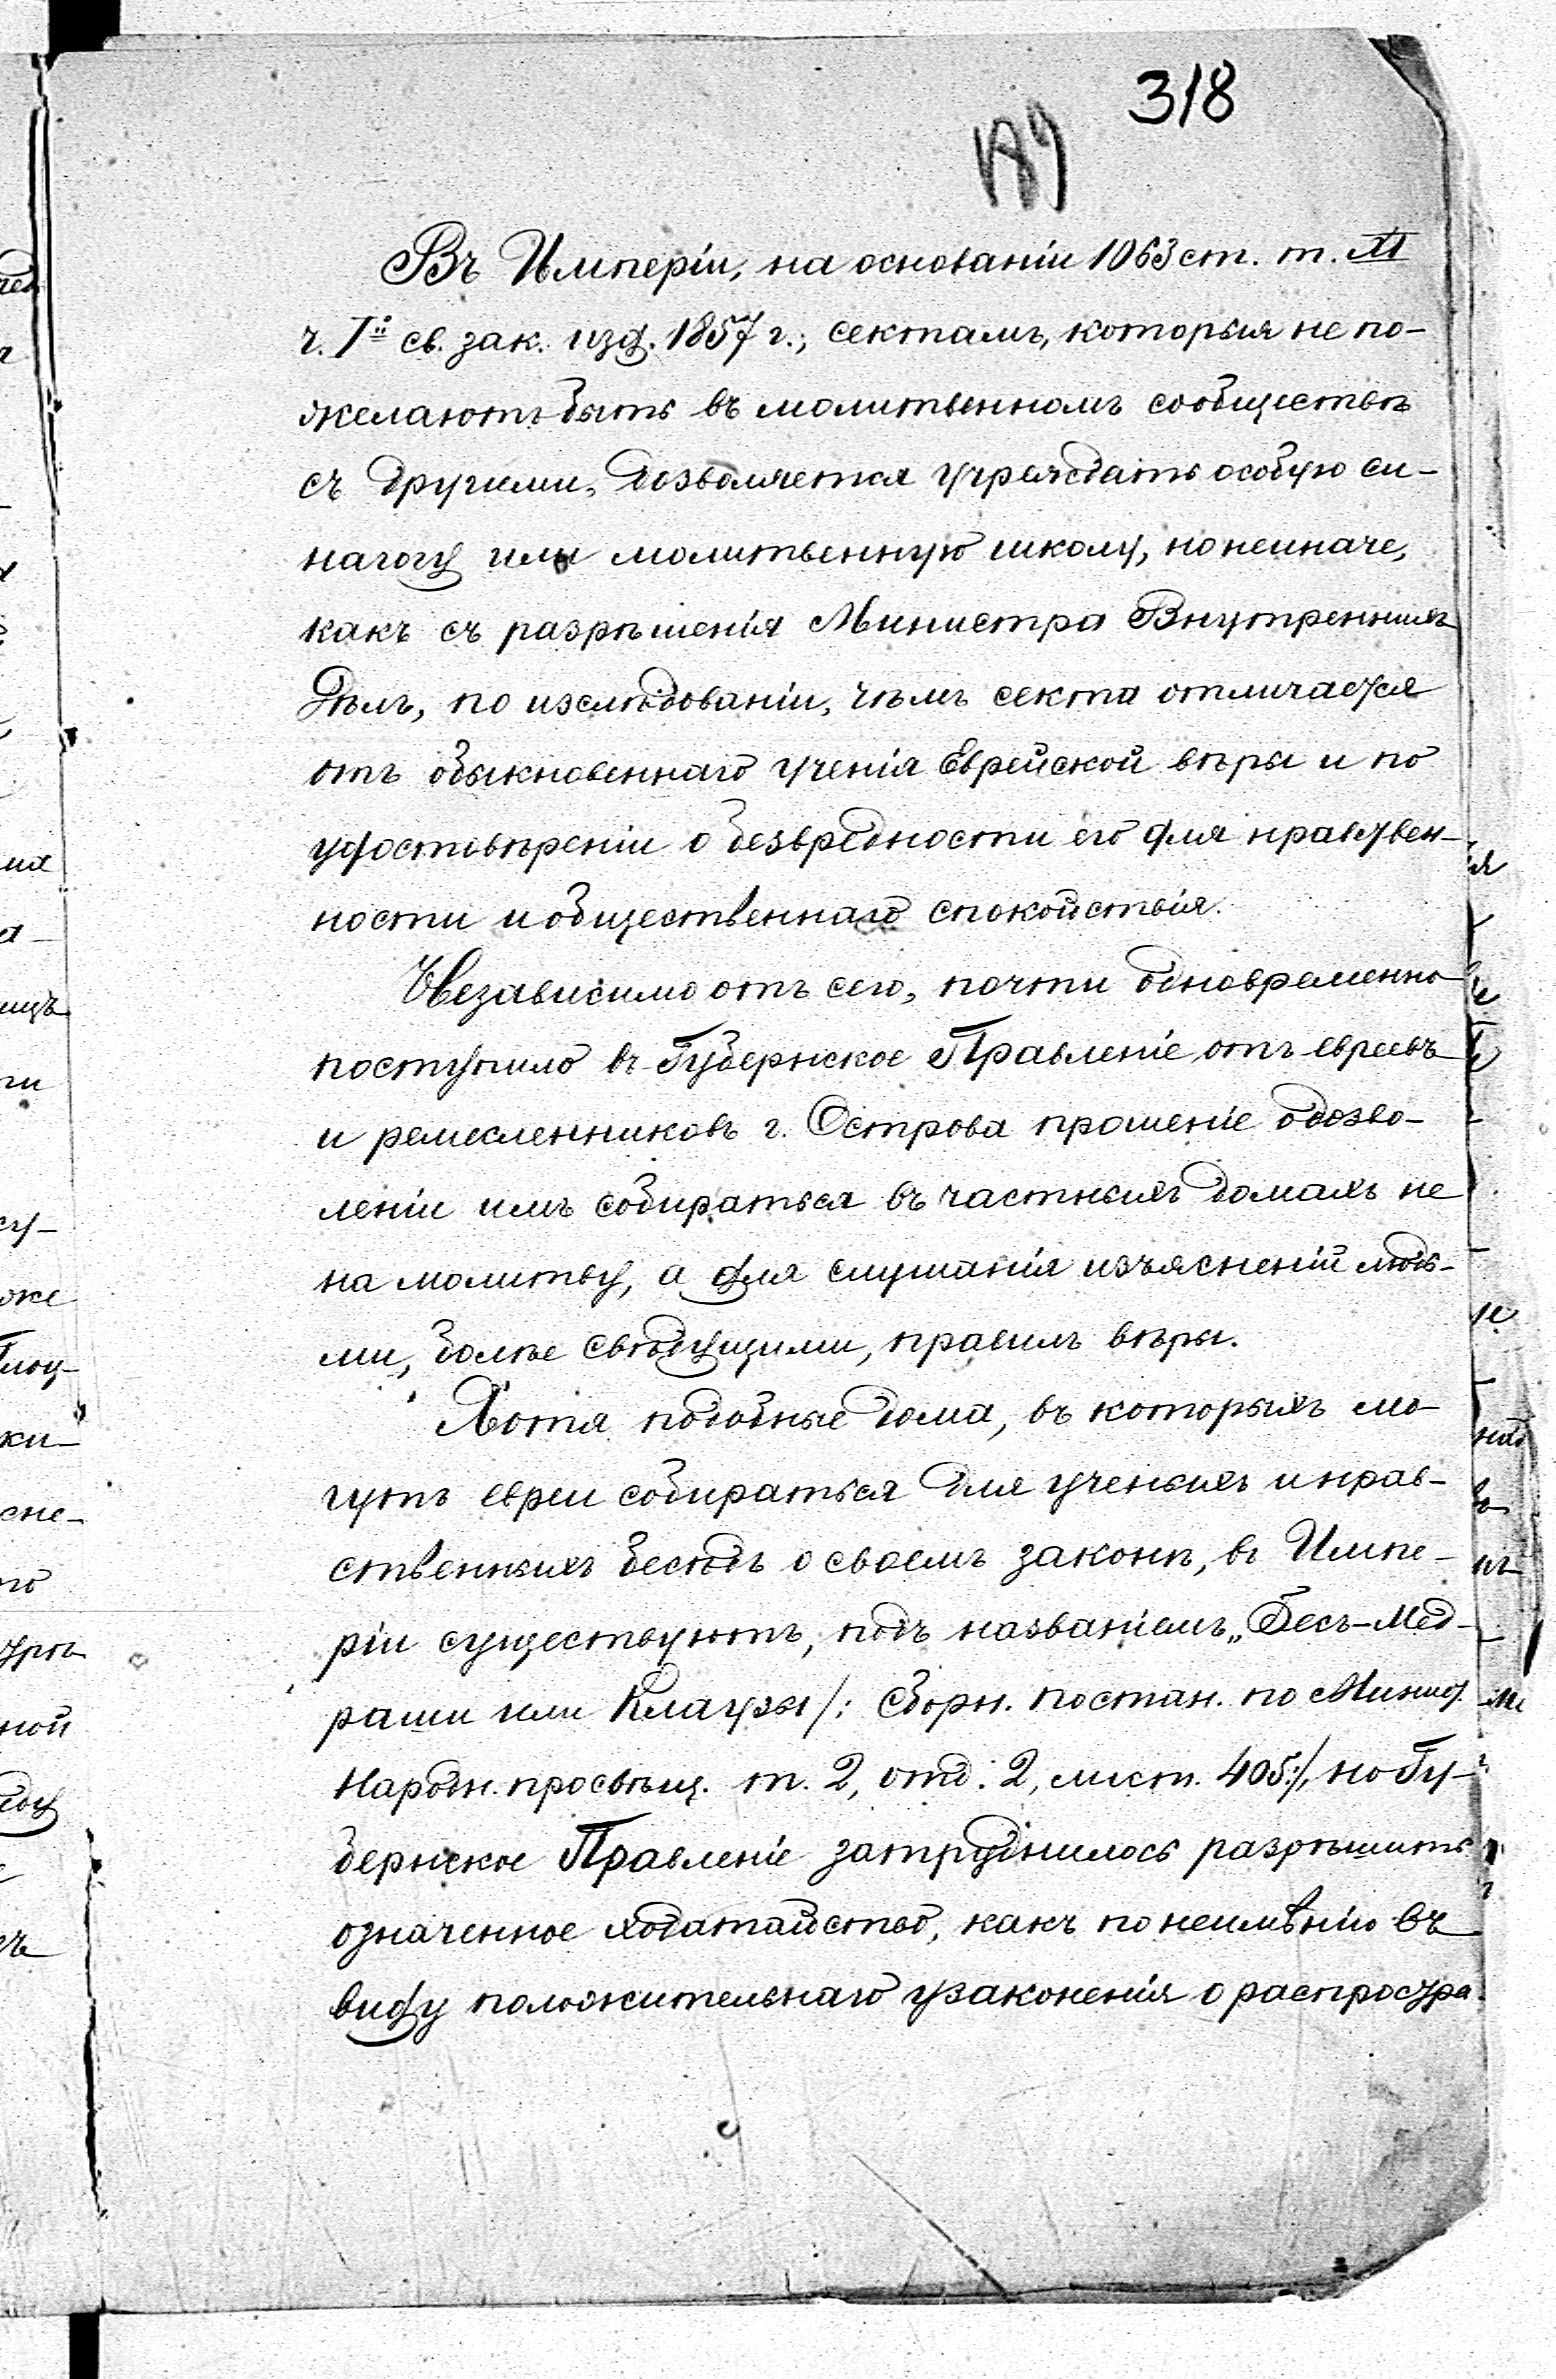 318
Въ Имперіи, на основаніи 1063 ст. т. XI
ч. I<sup>й</sup> св. зак. изд. 1857 г., сектамъ, которыя не по-
желаютъ быть въ молитвенномъ сообществѣ
съ другими, дозволяется учреждать особую си-
нагогу или молитвенную школу, но неиначе,
какъ съ разрѣшенія Министра Внутреннихъ
Дѣлъ, по изслѣдованіи, чѣмъ секта отличается
отъ обыкновеннаго ученія Еврейской вѣры и по
удостовѣреніи о безвредности его для нравствен-
ности и общественнаго спокойствія.
Независимо отъ сего, почти одновременно
поступило въ Губернское Правленіе отъ евреевъ
и ремесленниковъ г. Острова прошеніе о дозво-
леніи имъ собираться въ частныхъ домахъ не
на молитву, а для слушанія изъясненій людь-
ми, болѣе свѣдущими, правилъ вѣры.
Хотя подобные дома, въ которыхъ мо-
гутъ евреи собираться для ученыхъ и нрав-
ственныхъ бесѣдъ о своемъ законѣ, въ Импе-
ріи существуютъ, подъ названіемъ „Бесъ-Мед-
раши или Клаузы /: Сборн. постан. по Минист.
Народн. просвѣщ. т. 2, отд. 2, лист. 405 :/, но Гу-
бернское Правленіе затруднилось разрѣшить
означенное ходатайство, какъ по неимѣнію въ
виду положительнаго узаконенія о распростра